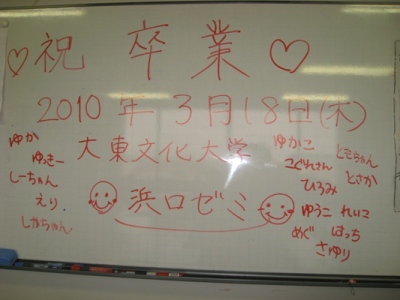 ♡祝 卒 業♡
2010年 3月18日(木)
大東文化大学
浜口ゼミ
ゆか
ゆっきー
しーちゃん
えり.
しかちゃん
ゆかこ
ともちゃん
こぐれさん
とさか
ひろみ
ゆうこ れいこ
めぐ はっち
さゆり